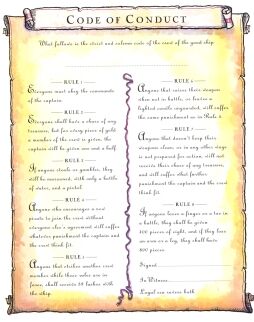 CODE OF CONDUCT
What follows is the strict and solemn code of the crew of the good ship
RULE 1
Everyone must obey the commands
of the captain.
RULE 2
Everyone shall have a share of any
treasure, but for every piece of gold
a member of the crew is given, the
captain will be given one and a half.
RULE 3
If anyone steals or gambles, they
will be marooned, with only a bottle
of water, and a pistol.
RULE 4
Anyone who encourages a new
pirate to join the crew without
everyone else's agreement will suffer
whatever punishment the captain and
the crew think fit.
RULE 5
Anyone that strikes another crew
member while these rules are in
force, shall receive lashes with
the whip.
RULE 6
Anyone that raises their weapon
when not in battle, or leaves a
lighted candle unguarded, will suffer
the same punishment as in Rule 5.
RULE 7
Anyone that doesn't keep their
weapons clean, or in any other way
is not prepared for action, will not
receive their share of any treasure,
and will suffer what further
punishment the captain and the crew
think fit.
RULE 8
If anyone loses a finger or a toe in
a battle, they shall be given
pieces of eight, and if they lose
an arm or a leg, they shall have
800 pieces.
Signed
In Witness
Loyal crew